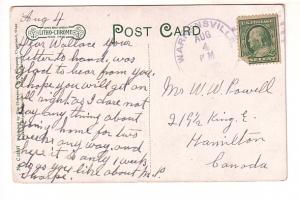 Aug 4
POST CARD
LITHO-CHROME
WARRENSVILLE
AUG
4
PM
Dear Wallace your
letter to hand, was
glad to hear from you.
hope you will get on
all right, as I dare not
say any thing about
going home for two
weeks any way, and
here it is only 1 week
do as you like about
Mr. W. W. Powell
219½ King, E.
Hamilton
Canada